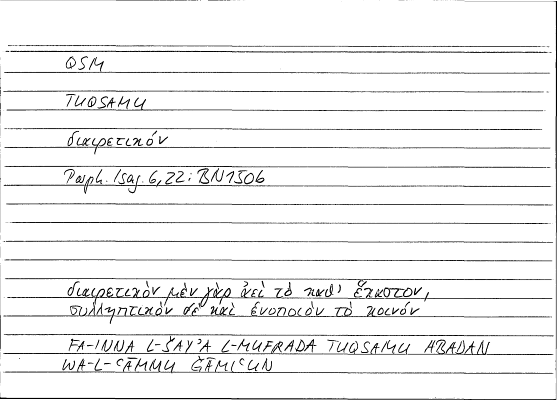 QSM
TUQSAMU
διαιρετικόν
Porph. Isag. 6, 22; BN1506
διαιρετικὸν μὲν γὰρ ἀεὶ τὸ καθ' ἕκαστον,
συλληπτικὸν δὲ καὶ ἑνοποιὸν τὸ κοινόν
FA-INNA L-ŠAYʾA L-MUFRADA TUQSAMU ABADAN
WA-L-ʿĀMMU ǦĀMIʿUN